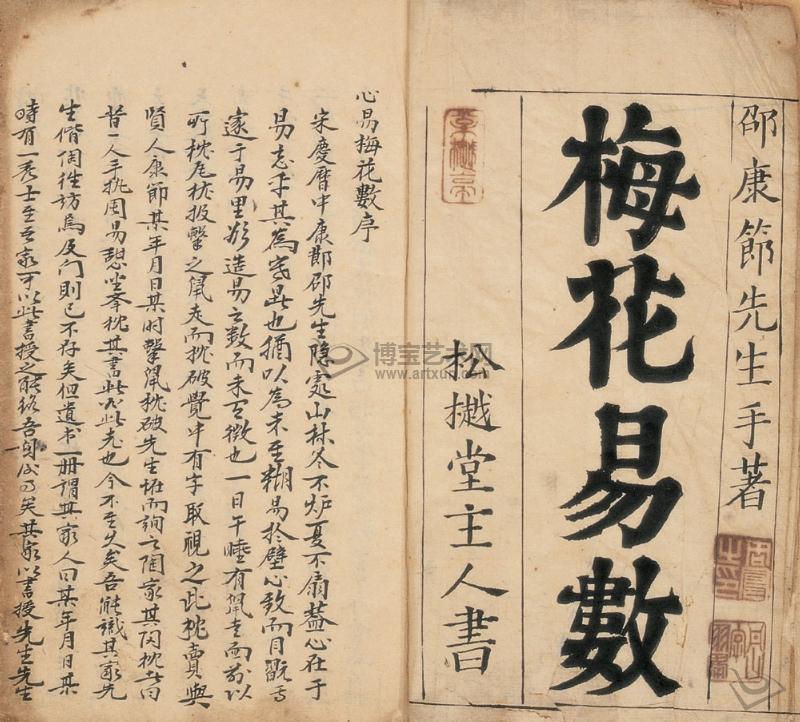 邵康節先生手著
梅花易數
松樾堂主人書
心易梅花數序
宋慶曆中康節邵先生隱處山林冬不炉夏不扇蓋心在于
易忘乎其為寒暑也猶以為未至糊易於壁心致而目翫焉
邃于易里欲造易之数而未百徵也一日午睡有鼠走而前以
所枕瓦枕投擊之鼠走而枕破覺中有字取視之此枕賣與
賢人康節某年月日某时擊鼠枕破先生怪而詢之陶家其陶枕者曰
昔一人手执周易憩坐举枕其書此必此老也今不至久矣吾能識其家先
生偕陶往訪焉及門則已不存矣但遺书一册謂其家人曰某年月日某
時有一秀士至吾家可以此書授之能終吾身後事矣其家以書授先生先生
博宝艺术网
www.artxun.com